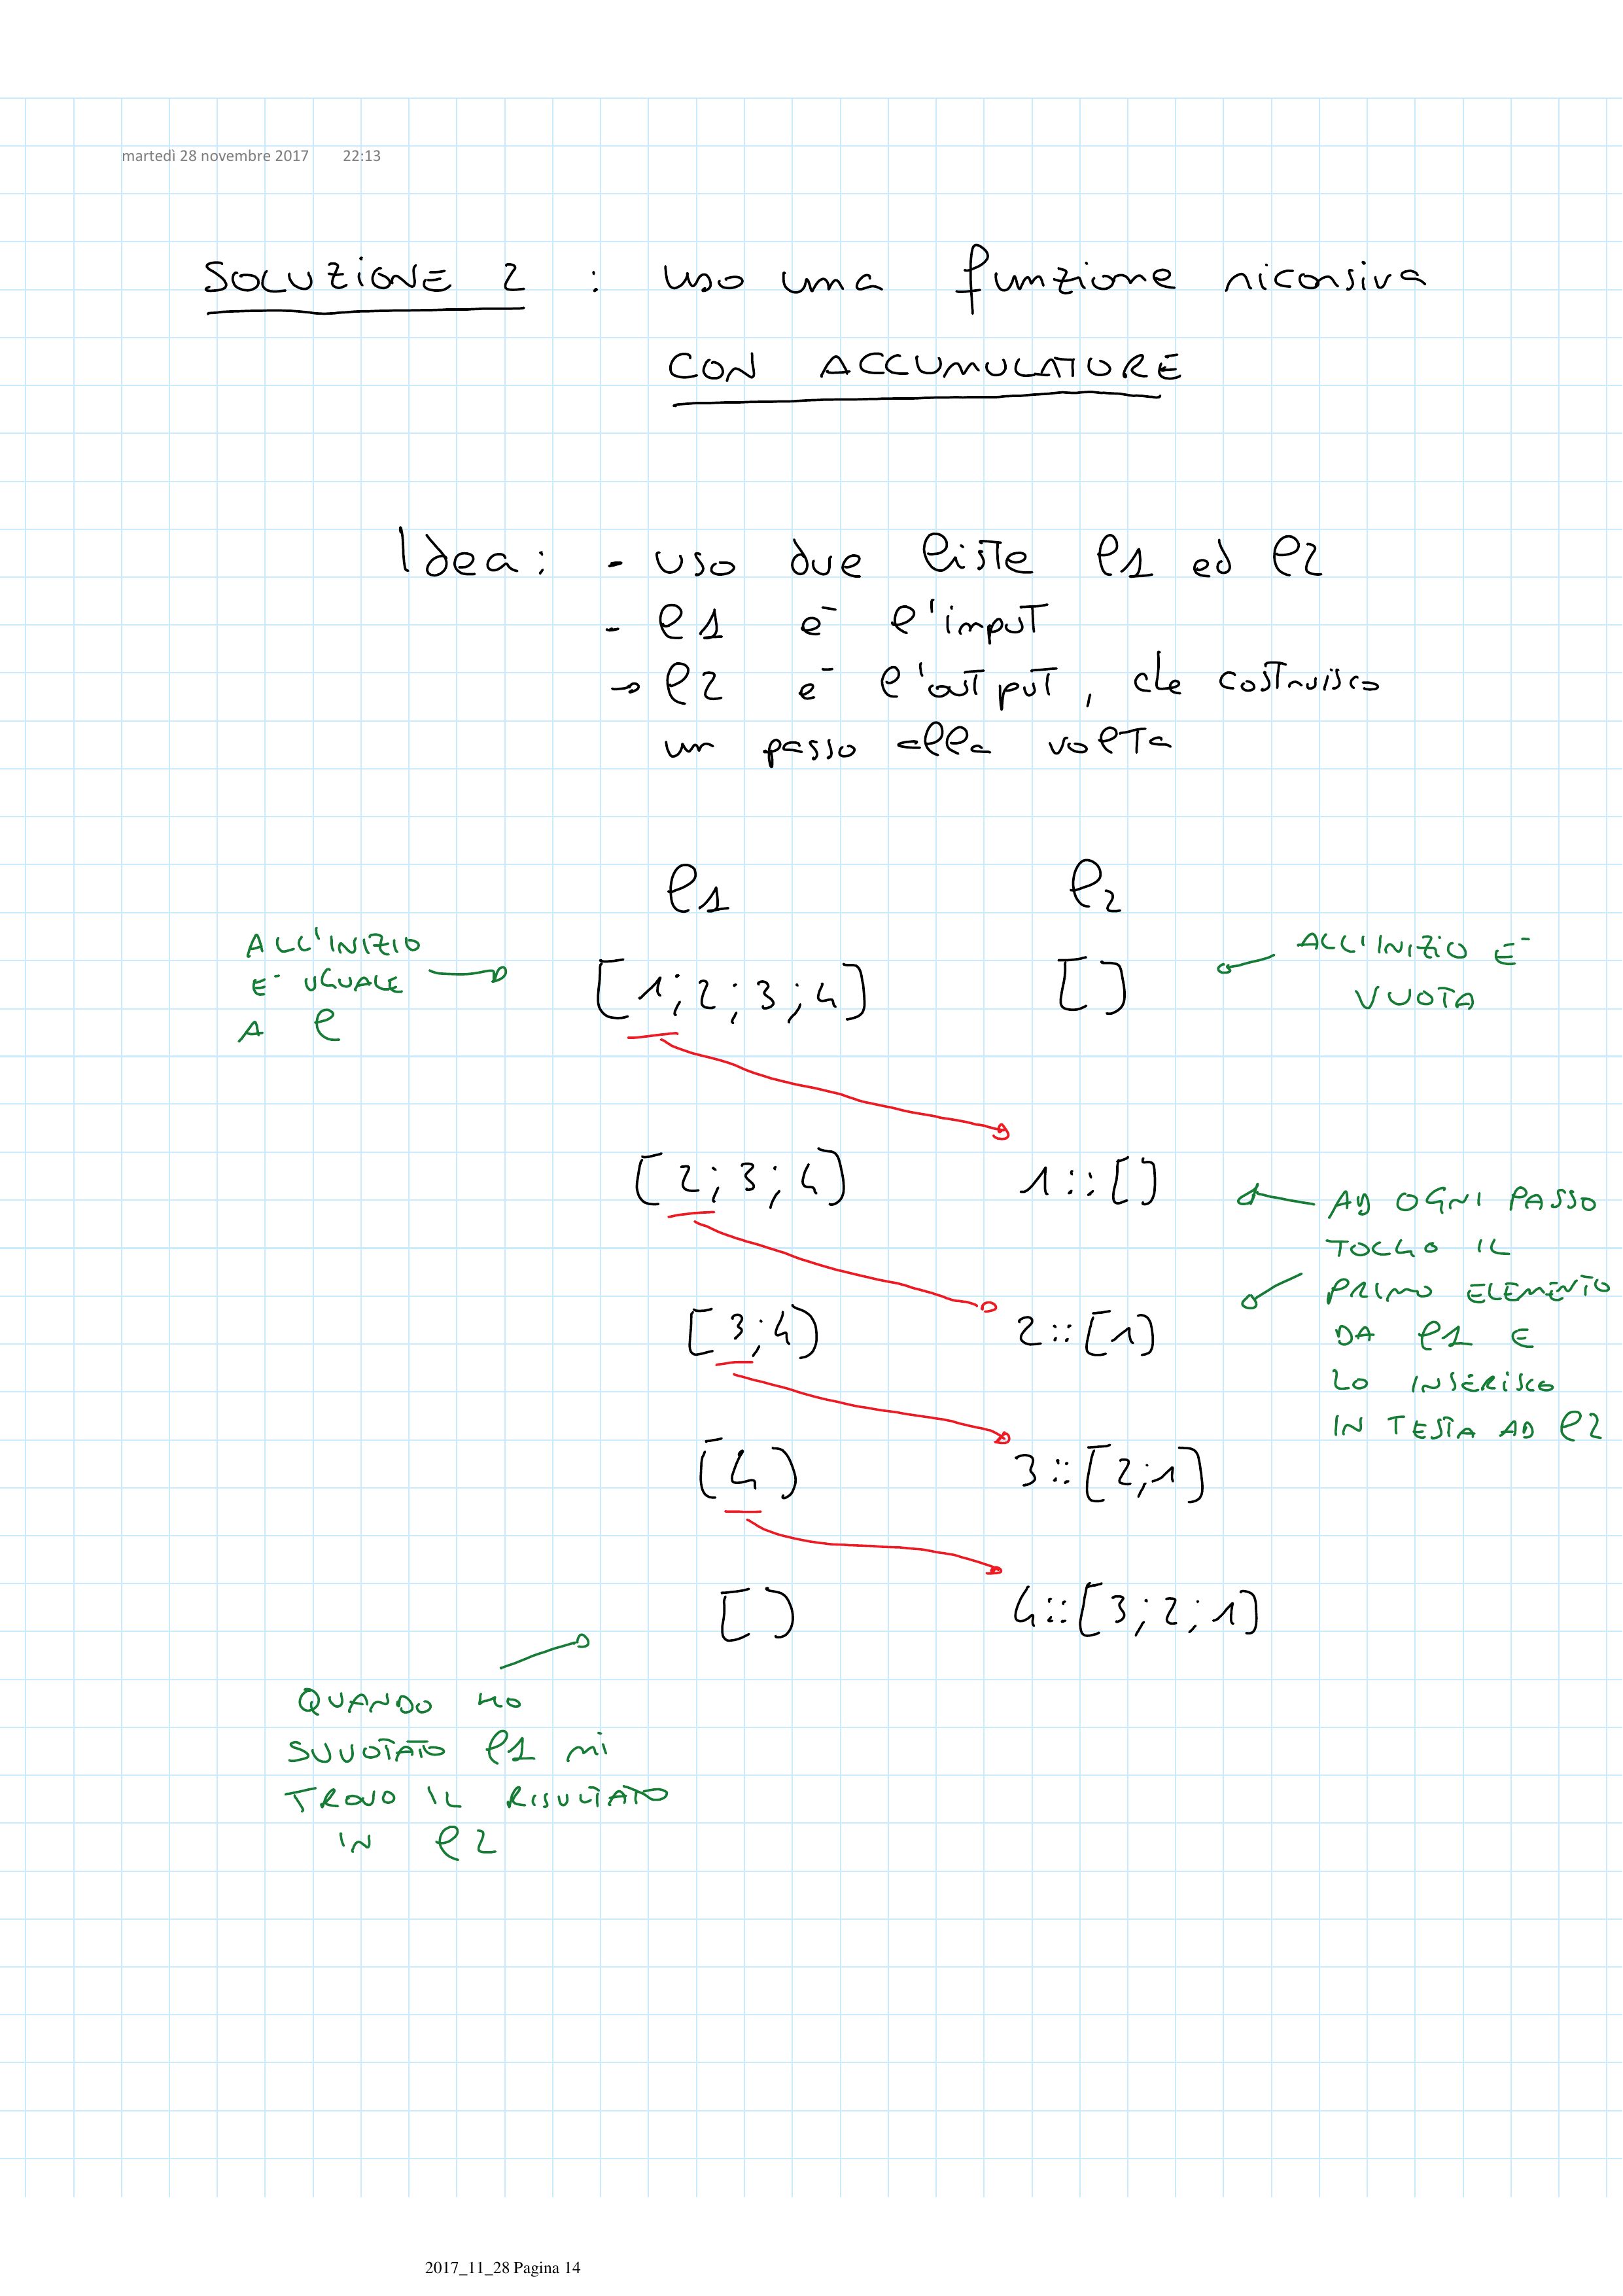 martedì 28 novembre 2017 22:13
SOLUZIONE 2 : uso una funzione ricorsiva
CON ACCUMULATORE
Idea: - uso due liste l1 ed l2
- l1 è l'input
→ l2 è l'output, che costruisco
un passo alla volta
l1 l2
ALL'INIZIO
E' UGUALE
A l
[1;2;3;4] []
ALL'INIZIO E'
VUOTA
[2;3;4] 1::[]
AD OGNI PASSO
TOLGO IL
PRIMO ELEMENTO
DA l1 E
LO INSERISCO
IN TESTA AD l2
[3;4] 2::[1]
[4] 3::[2;1]
[] 4::[3;2;1]
QUANDO HO
SVUOTATO l1 MI
TROVO IL RISULTATO
IN l2
2017_11_28 Pagina 14